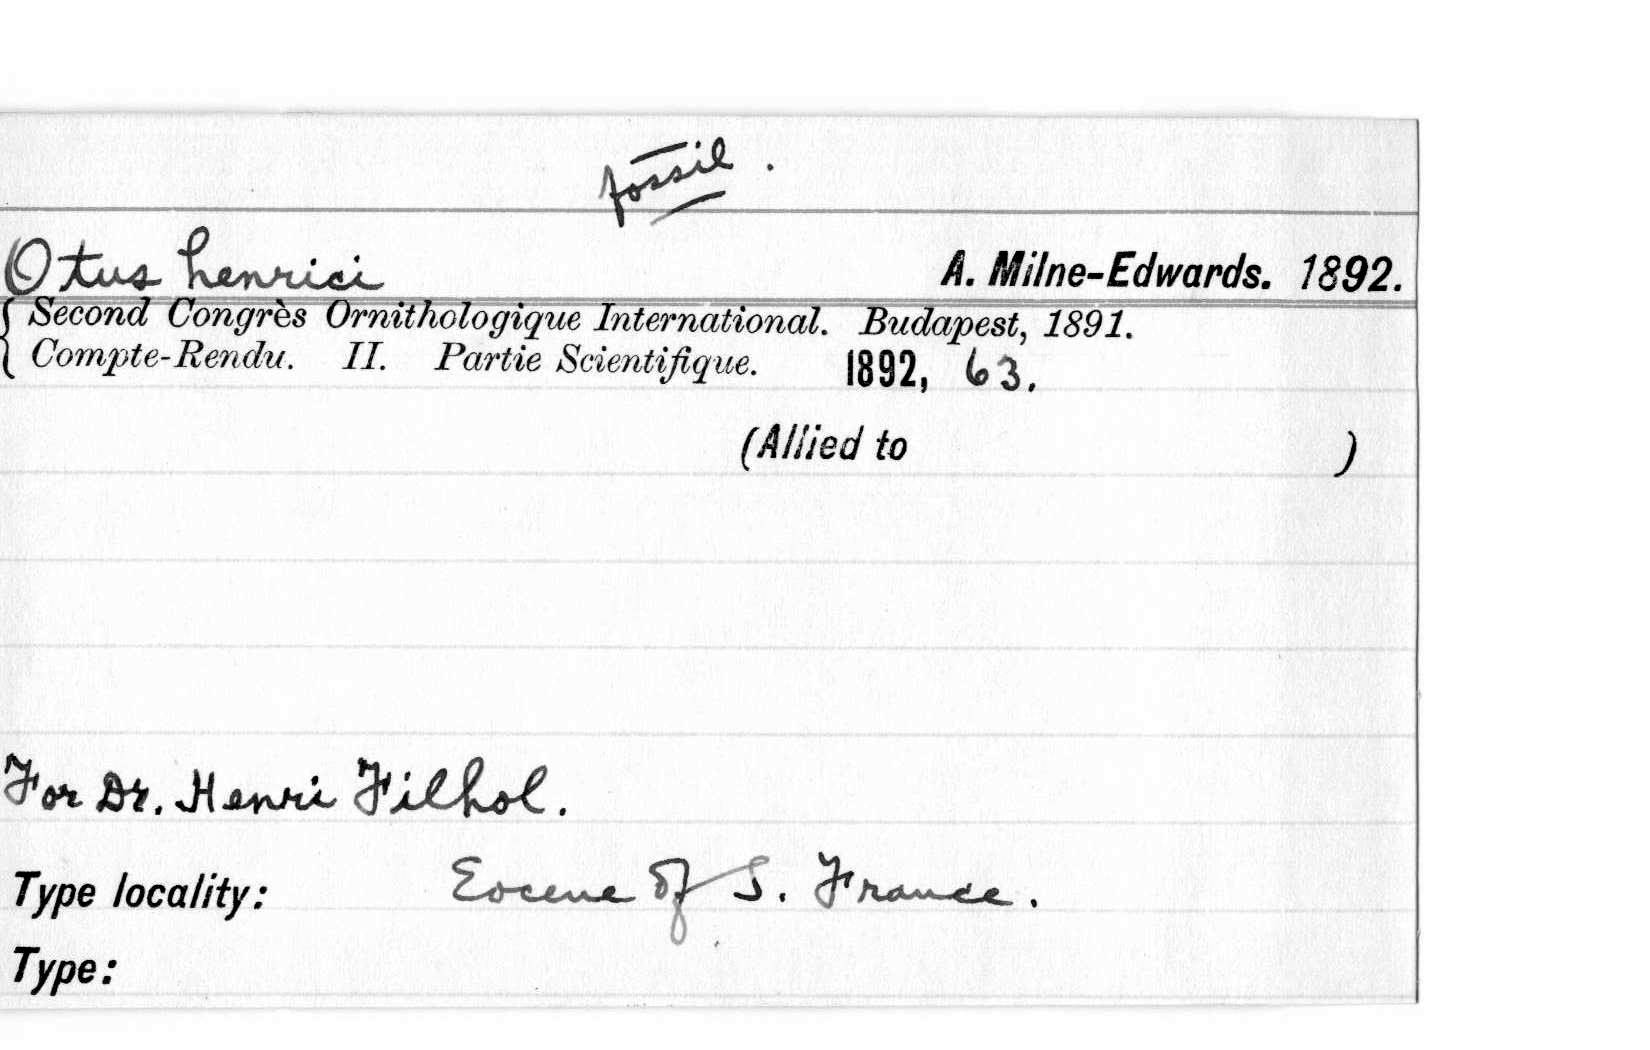 fossil.
Otus henrici A. Milne-Edwards. 1892.
Second Congrès Ornithologique International. Budapest, 1891.
Compte-Rendu. II. Partie Scientifique. 1892, 63.
(Allied to )
For Dr. Henri Filhol.
Type locality: Eocene of S. France.
Type: